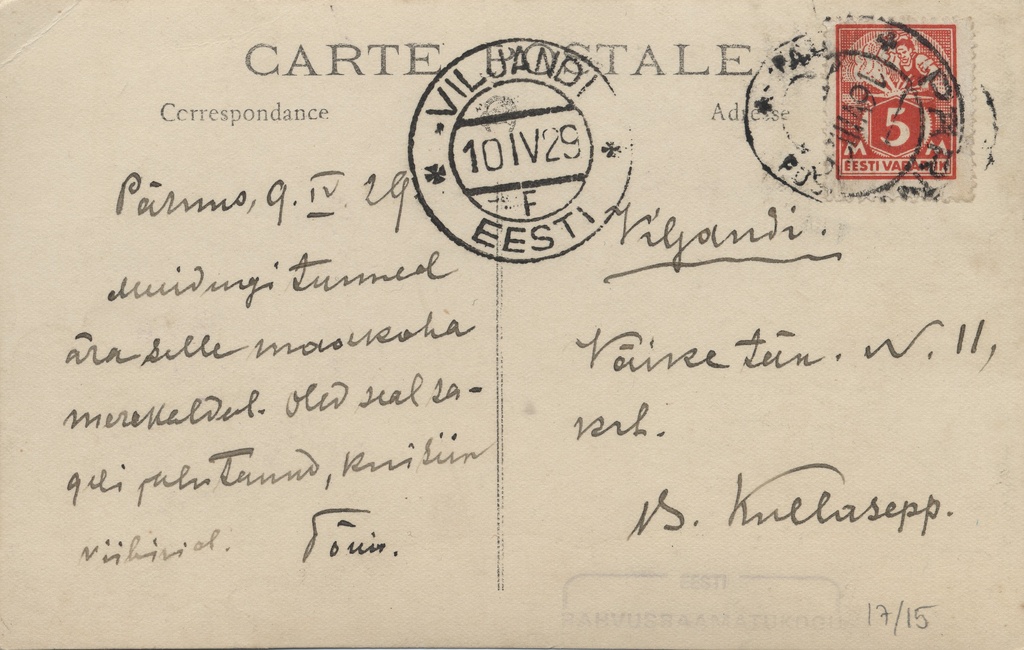 CARTE POSTALE
Correspondance
Adresse
VILJANDI
10 IV 29
F
EESTI
5
M M
EESTI VABARIIK
Pärnus, 9. IV. 29
Muidugi tunned
ära selle maakoha
merekaldal. Oled seal sa-
geli jalutanud, kui siin
viibisid. Tõnis.
Viljandi.
Väike tän. N. 11,
krt.
B. Kullasepp.
EESTI
RAHVUSRAAMATUKOGU
17/15